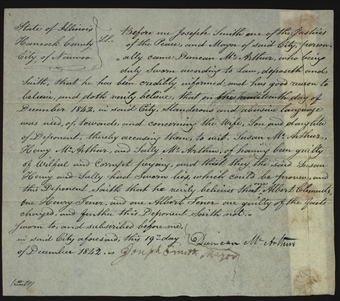 State of Illinois
Hancock County } ss.
City of Nauvoo
Before me Joseph Smith one of the Justices
of the Peace, and Mayor of said City, person-
ally came Duncan McArthur, who being
duly sworn according to law, deposeth and
saith, that he has been credibly informed, and has good reason to
believe, and doth verily believe, that on the day of
December 1842, in said City, Slanderous and language
was used, of, towards, and concerning the Wife, Son and daughter
of Deponent, thereby accusing them, to wit Susan McArthur,
Henry McArthur, and Sally McArthur, of having been guilty
of Wilful and Corrupt perjury, and that they the said Susan
Henry and Sally had Sworn lies, which could be proven, and
this Deponent Saith that he verily believes that Albert Clements,
one Henry Tenor, and one Albert Tenor are guilty of the facts
charged, and further this Deponent Saith not.
Sworn to, and subscribed before me,
in said City aforesaid, this 19th day
Duncan McArthur
of December 1842.
Joseph Smith Mayor